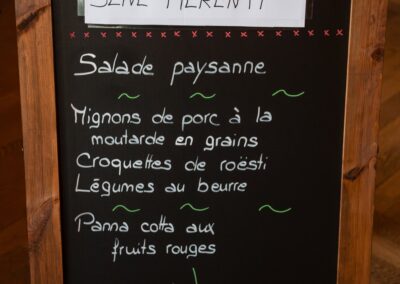 BENE MERENTI
Salade paysanne
Mignons de porc à la
moutarde en grains
Croquettes de roësti
Légumes au beurre
Panna cotta aux
fruits rouges